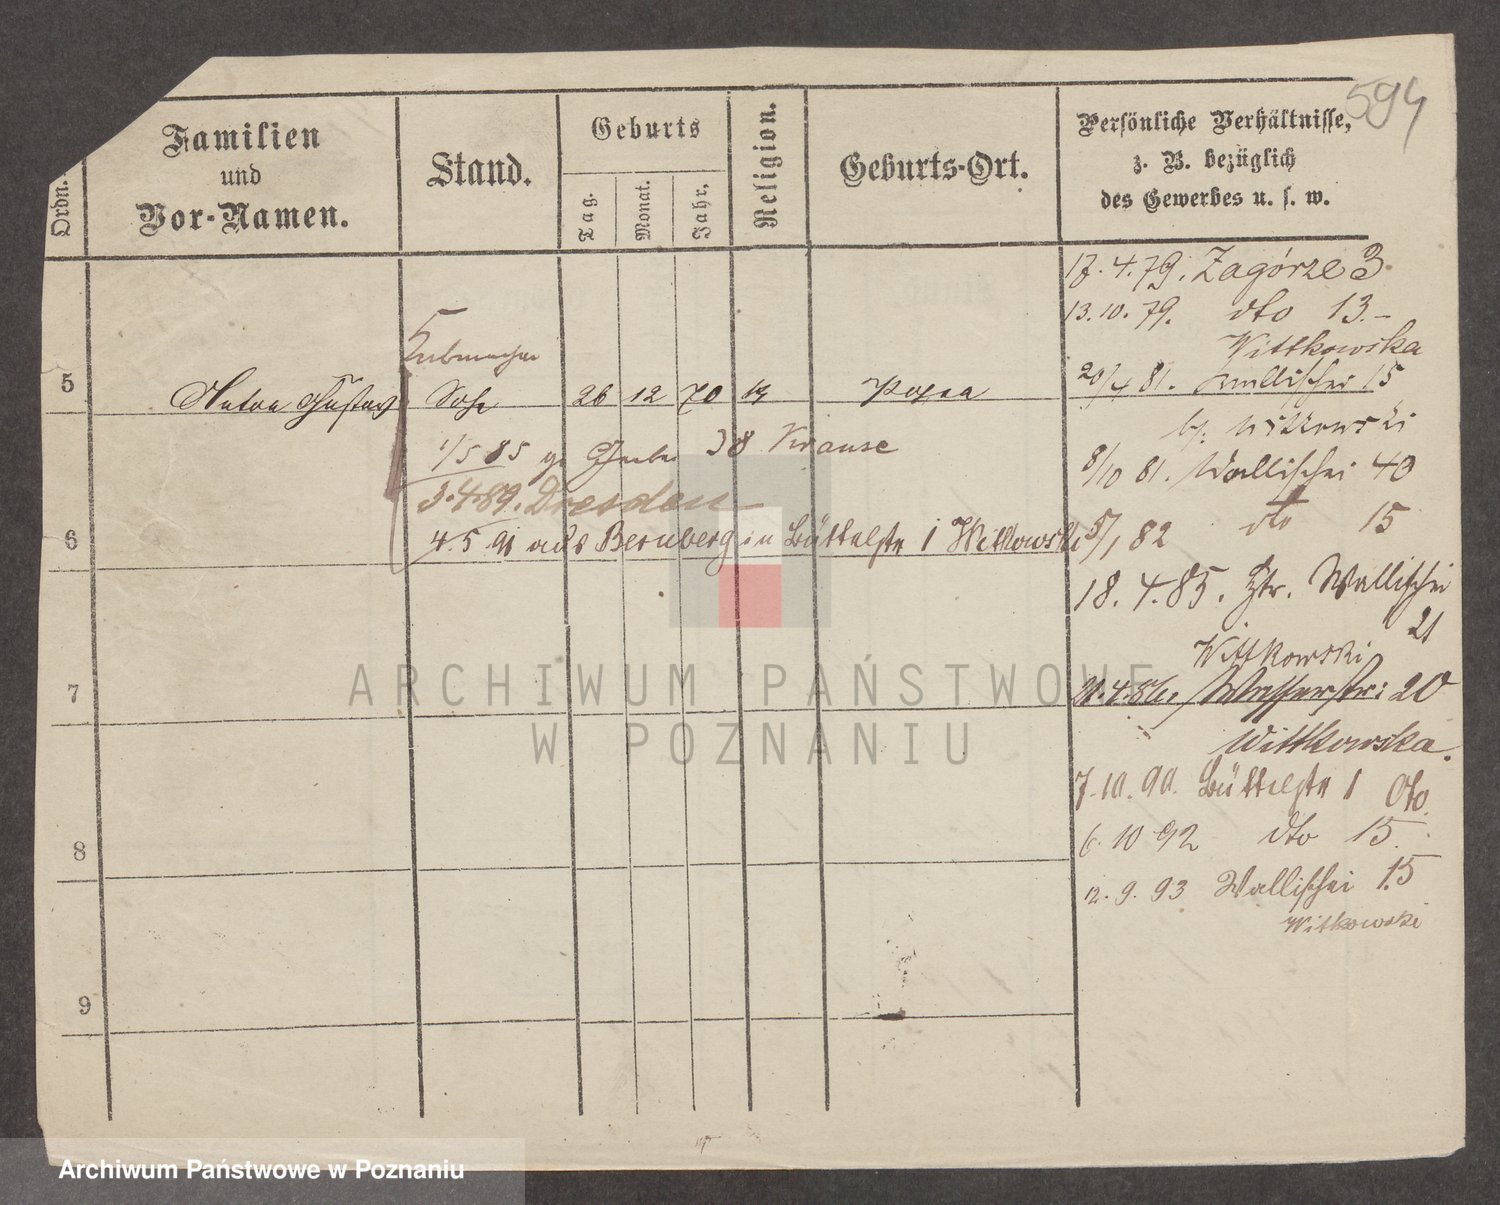 594
Ordn.
Familien
und
Vor-Namen.
Stand.
Geburts
Tag.
Monat.
Jahr.
Religion.
Geburts-Ort.
Persönliche Verhältnisse,
z. B. bezüglich
des Gewerbes u. s. w.
17.4.79. Zagórze 3.
13.10.79. dto 13.-
Wittkowska
5
Anton Gustav Sohn 26 12 70 k Posen
20/4 81. Wallischei 15
b. Witkowski
1/5 85 38 Krause
8/10 81. Wallischei 40
3.4.89. Dresden
dto 15
6
4.5 91 aus Bernberg in Büttelstr 1 Witkowski
5/1 82
18.4.85. Wallischei
21
Wittkowski
7
Wasserstr: 20
Wittkowska.
7.10.90. Büttelstr 1 dto.
6.10 92 dto 15.
8
12.9.93 Wallischei 15
Witkowski
9
ARCHIWUM PAŃSTWOWE
W POZNANIU
Archiwum Państwowe w Poznaniu